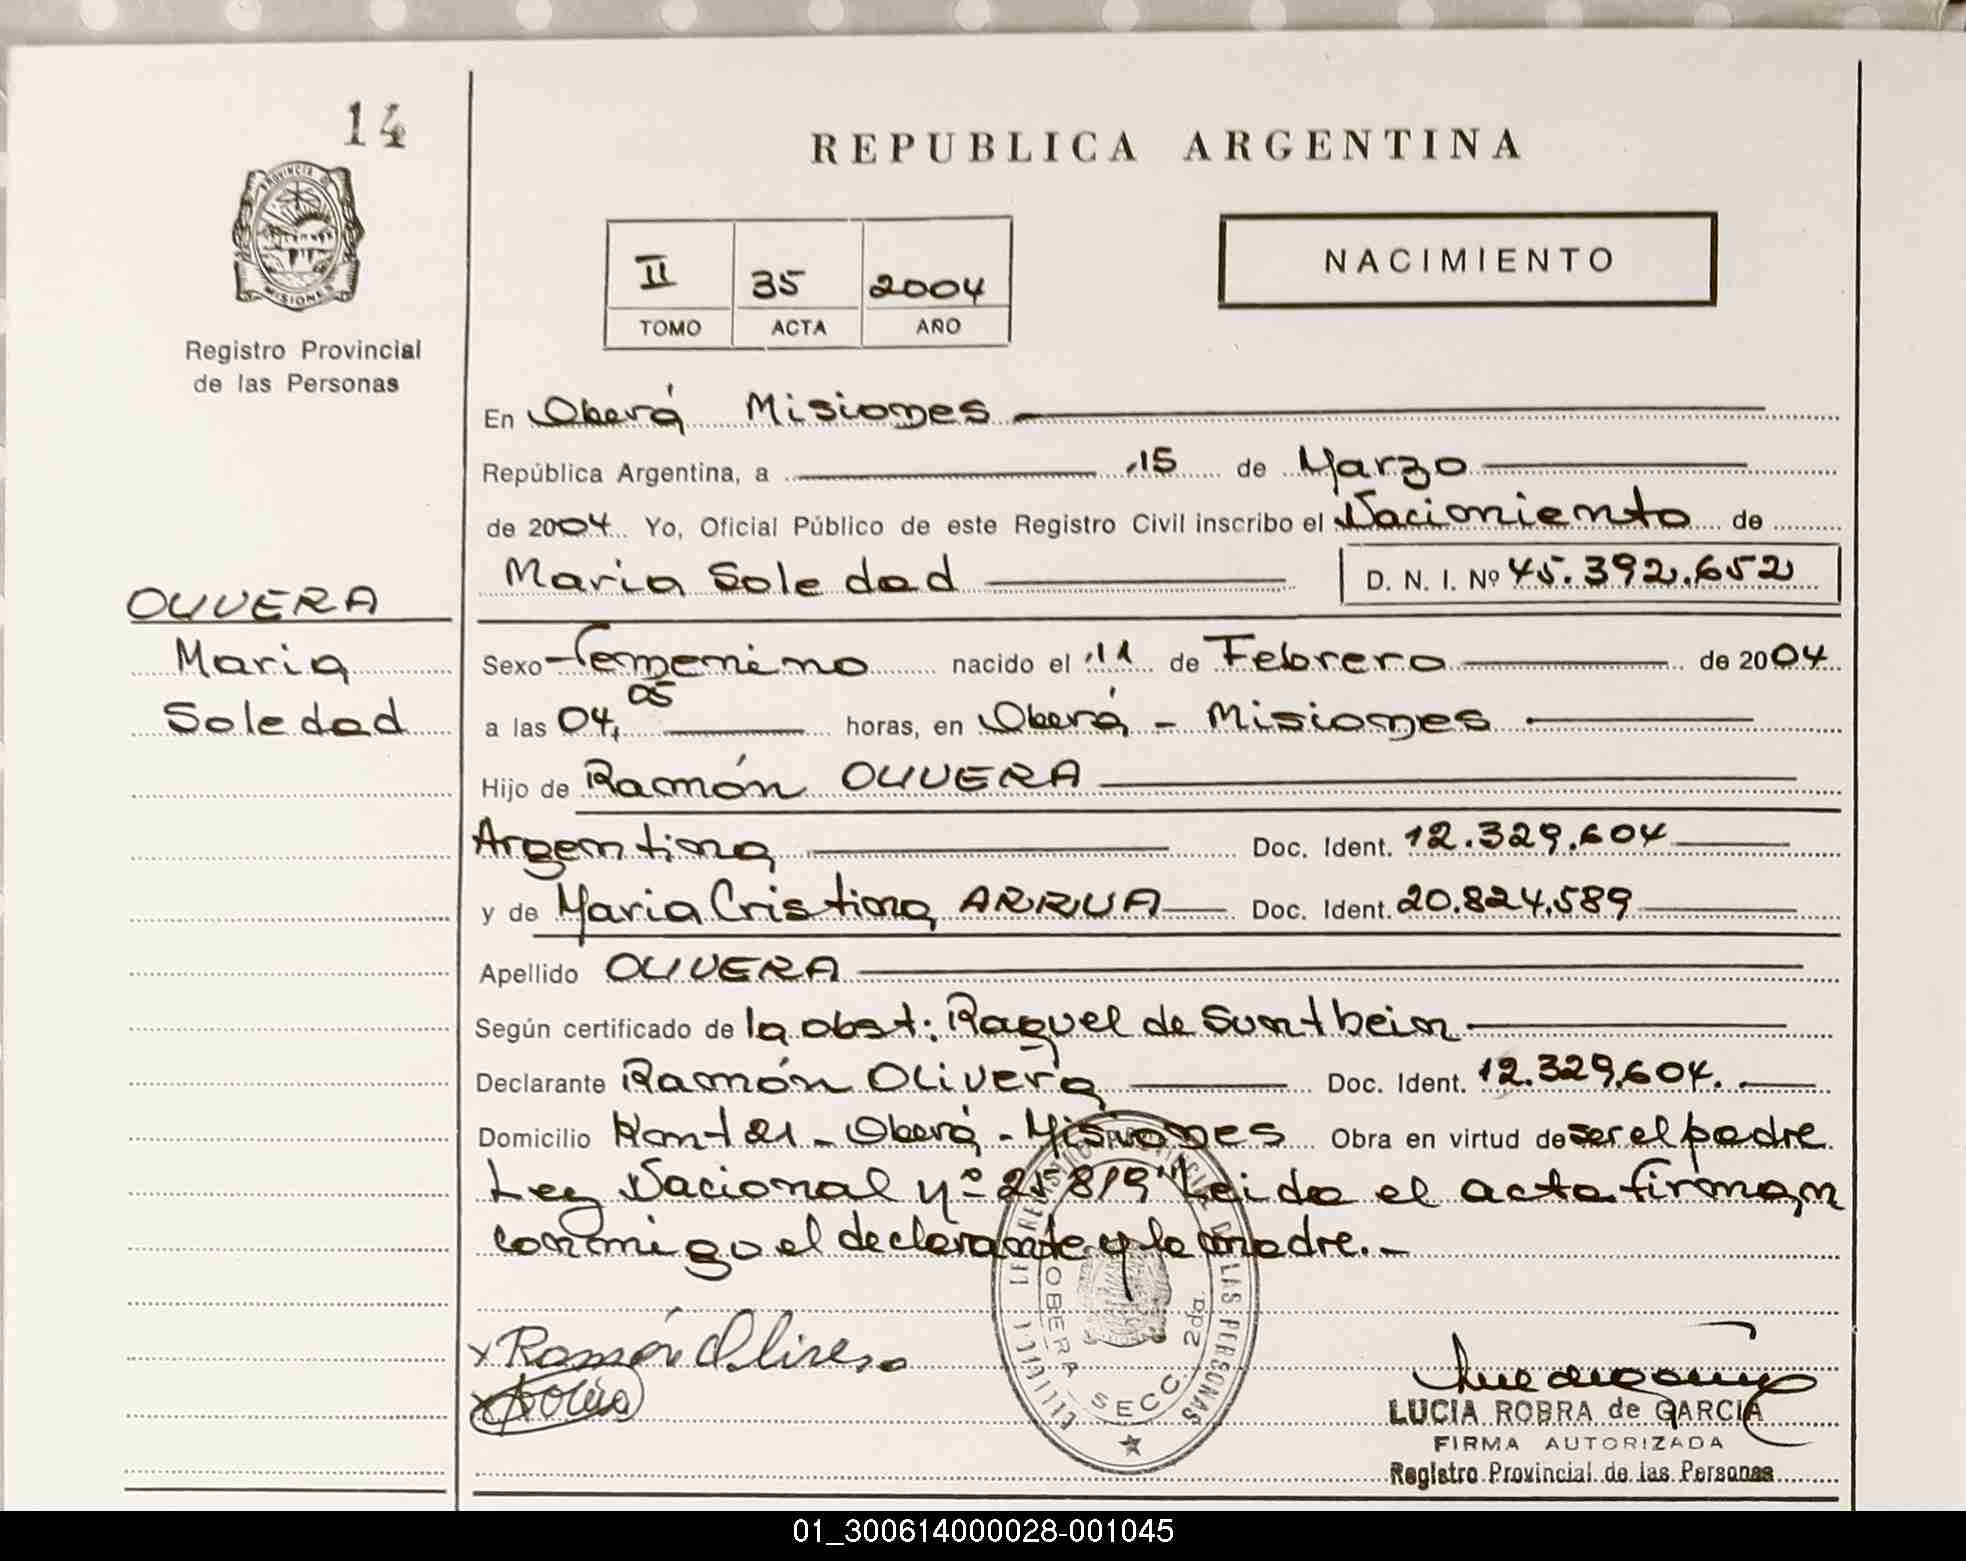 14
REPUBLICA ARGENTINA
PROVINCIA D
MISIONES
II 35 2004
TOMO ACTA AÑO
NACIMIENTO
Registro Provincial
de las Personas
En Oberá Misiones
República Argentina, a 15 de Marzo
de 2004 Yo, Oficial Público de este Registro Civil inscribo el Nacimiento de
Maria Soledad D. N. I. Nº 45.392.652
OLIVERA
Maria
Soledad
Sexo Femenino nacido el 11 de Febrero de 2004
a las 04,05 horas, en Oberá - Misiones
Hijo de Ramón OLIVERA
Argentina Doc. Ident. 12.329.604
y de Maria Cristina ARRUA Doc. Ident. 20.824.589
Apellido OLIVERA
Según certificado de la obst: Raquel de Suntheim
Declarante Ramón Olivera Doc. Ident. 12.329.604.
Domicilio Oberá - Misiones Obra en virtud de ser el padre
Ley Nacional nº 25819 Leida el acta firman
conmigo el declarante y la madre.-
Ramón Olivera
OBERA SECC. 2da.
LAS PERSONAS
LUCIA ROBRA de GARCIA
FIRMA AUTORIZADA
Registro Provincial de las Personas
01_300614000028-001045